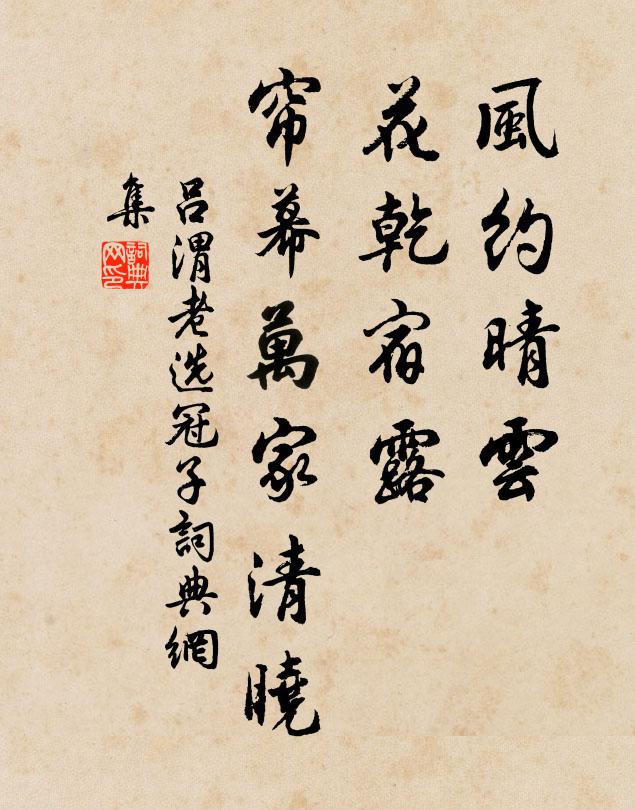 風約晴雲
花乾宿露
帘幕萬家清曉
呂渭老选冠子詞典網
集
詞典
网印